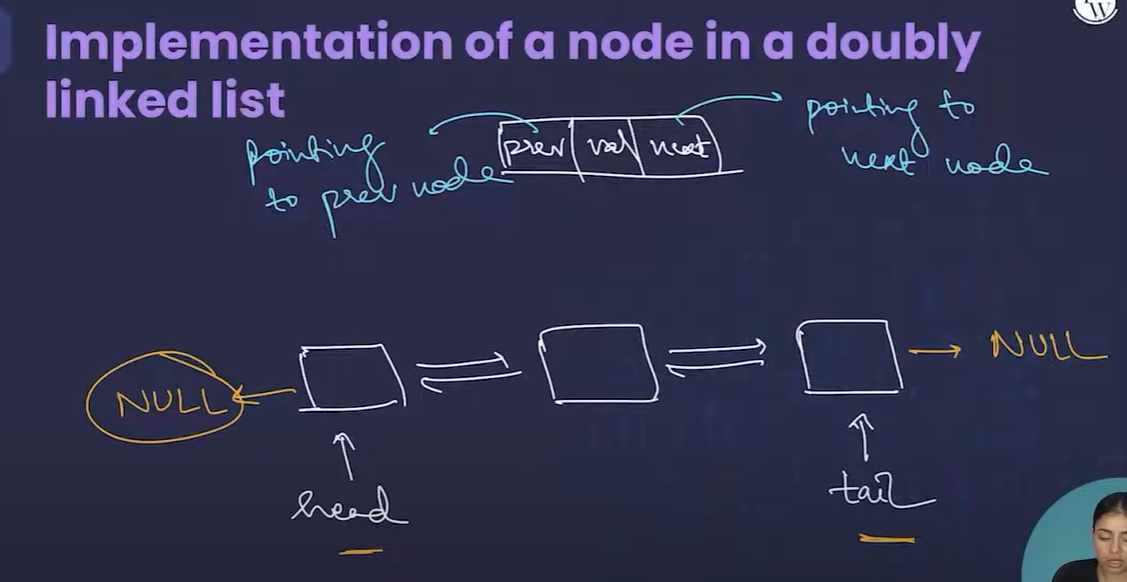 Implementation of a node in a doubly
linked list
pointing
to prev node
prev val next
pointing to
next node
NULL
NULL
head
tail